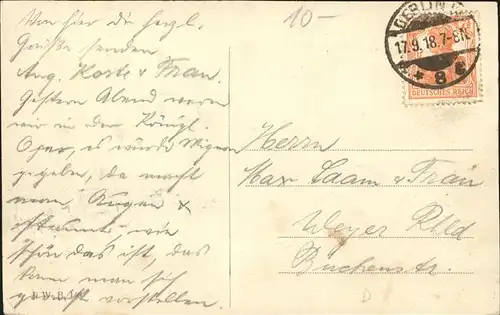 Von hier die herzl.
Grüße senden
Aug. Korte & Frau.
Gestern Abend waren
wir in der Königl.
Oper, es wurde Mignon
gegeben, da macht
man Augen &
wie
schön das ist, das
kann man sich
vorstellen.
10-
BERLIN
17.9.18.7-8N.
* 8
DEUTSCHES REICH
Herrn
Max Laam & Frau
Weyer Rhld
Büchenstr.
D